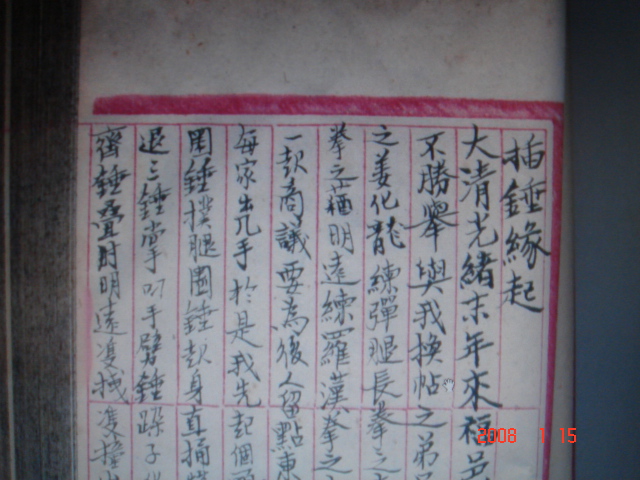 插錘緣起
大清光緒末年來福邑
不勝舉與我換帖之弟
之姜化龍練彈腿長拳之
拳之范明遠練羅漢拳之
一起商議要為後人留點東
每家出几手於是我先起個
圈錘撲腿圈錘起身直捅
退三錘掌叼手劈錘跺子
齊錘疊肘明遠雙拭雙
2008 1 15